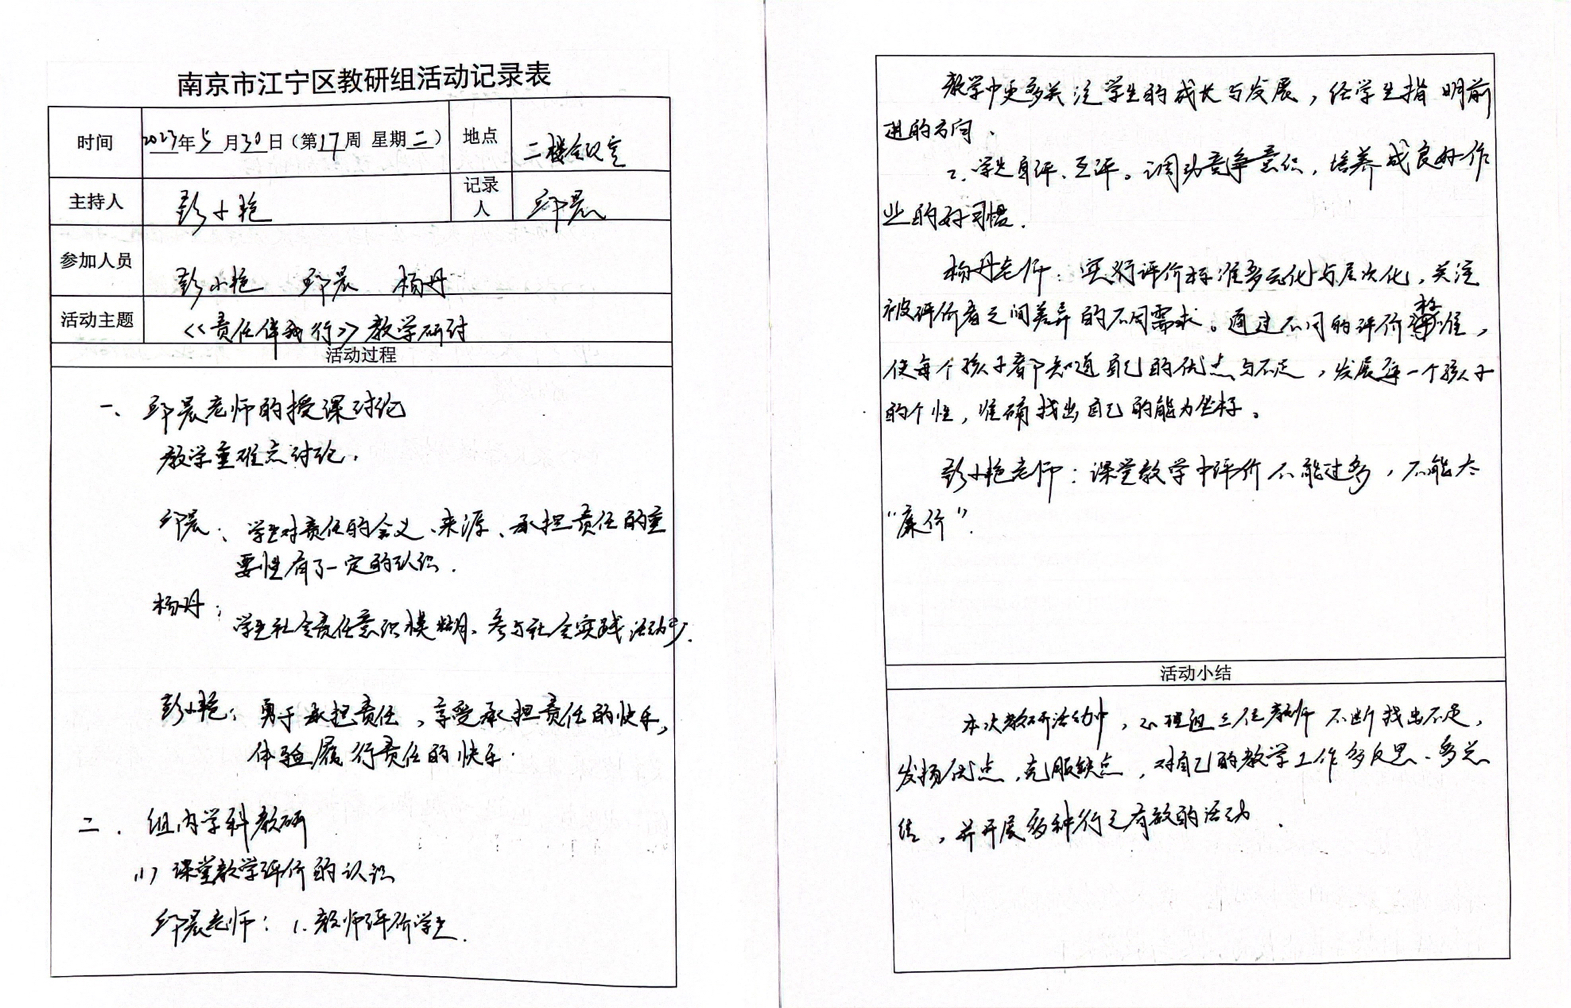 南京市江宁区教研组活动记录表
时间 2023年5月30日(第17周 星期二) 地点 二楼会议室
主持人 彭小艳 记录人 邱晨
参加人员 彭小艳 邱晨 杨丹
活动主题 《责任伴我行》教学研讨
活动过程
一、邱晨老师的授课讨论
教学重难点讨论.
邱晨:学生对责任的含义、来源、承担责任的重
要性有了一定的认识.
杨丹:
学生社会责任意识模糊、参与社会实践活动少.
彭小艳:勇于承担责任,享受承担责任的快乐,
体验履行责任的快乐.
二.组内学科教研
(1)课堂教学评价的认识
邱晨老师:1.教师评价学生.
教学中更多关注学生的成长与发展,给学生指明前
进的方向.
2.学生自评、互评。调动竞争意识,培养成良好作
业的好习惯.
杨丹老师:实行评价标准多元化与层次化,关注
被评价者之间差异的不同需求。通过不同的评价标准,
使每个孩子都知道自己的优点与不足,发展每一个孩子
的个性,准确找出自己的能力坐标。
彭小艳老师:课堂教学中评价不能过多,不能太
“廉价”.
活动小结
本次教研活动中,心理组三位教师不断找出不足,
发扬优点,克服缺点,对自己的教学工作多反思、多总
结,并开展多种行之有效的活动.